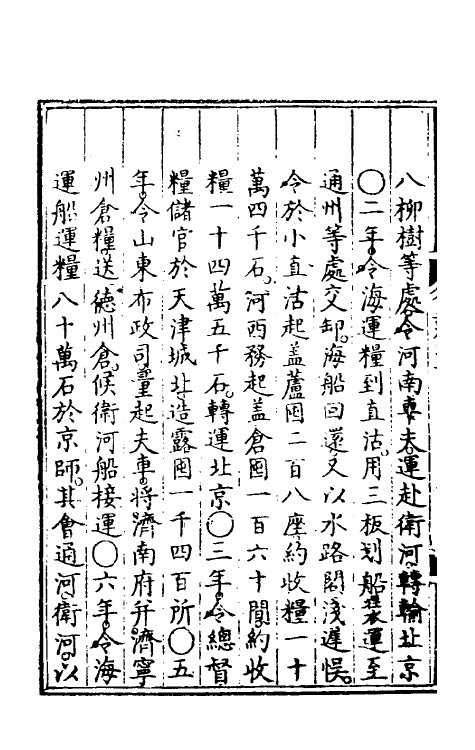 八柳樹等處令河南車夫運赴衛河轉輸北京
〇二年令海運糧到直沽用三板划船裝運至
通州等處交卸海船回還又以水路閣淺遲悞
令於小直沽起蓋蘆囤二百八座約收糧一十
萬四千石河西務起蓋倉囤一百六十間約收
糧一十四萬五千石轉運北京〇三年令總督
糧儲官於天津城北造露囤一千四百所〇五
年令山東布政司量起夫車將濟南府并濟寧
州倉糧送德州倉候衛河船接運〇六年令海
運船運糧八十萬石於京師其會通河衛河以